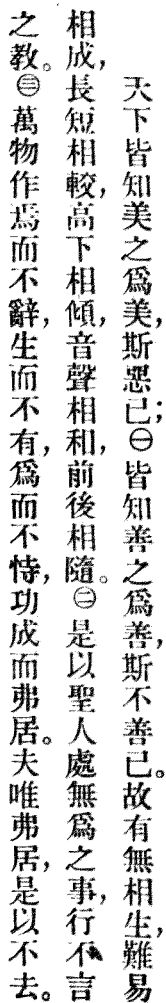 天下皆知美之爲美，斯惡已；㊀皆知善之爲善，斯不善已。故有無相生，難易
相成，長短相較，高下相傾，音聲相和，前後相隨。㊁是以聖人處無爲之事，行不言
之教。㊂萬物作焉而不辭，生而不有，爲而不恃，功成而弗居。夫唯弗居，是以不去。